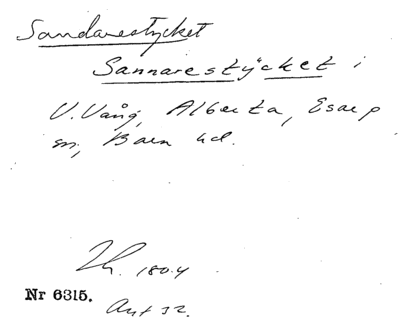 Sandarestycket
Sannarestycket i
V. Vång, Alberta, Esarp
sn, Bara hd.
1804
Nr 6315.